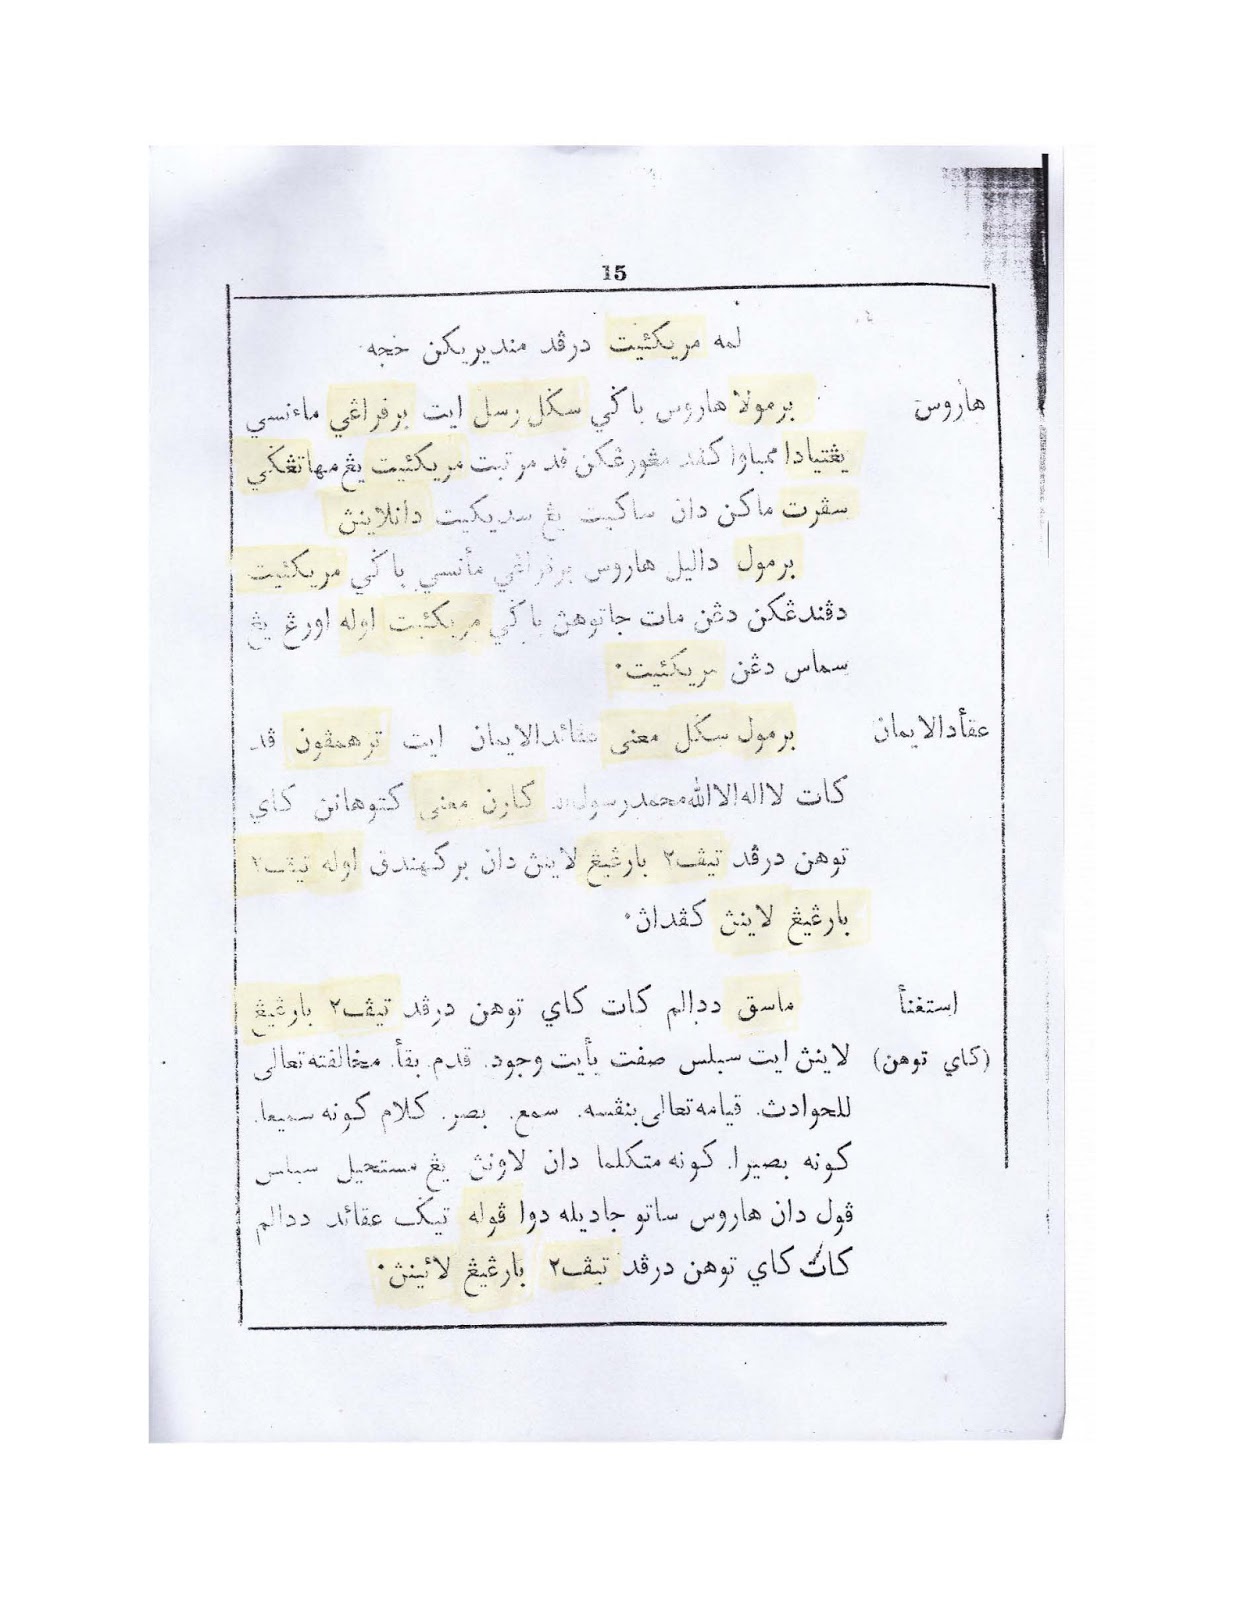 15
لمه مريكئيت درڤد منديريكن حجه
هاروس
برمولا هاروس باݢي سݢل رسل ايت برفراڠي ماءنسي
يڠتيادا ممباوا كفد مڠورڠكن فد مرتبت مريكئيت يڠ مهاتڠݢي
سڤرت ماكن دان ساكيت يڠ سديكيت دانلاينڽ
برمول داليل هاروس برفراڠي مأنسي باݢي مريكئيت
دڤندڠكن دڠن مات جاتوهڽ باݢي مريكئيت اوله اورڠ يڠ
سماس دڠن مريكئيت.
عقأدالايمان
برمول سݢل معنى عقائدالايمان ايت ترهمڤون ڤد
كات لااله الا الله محمد رسول الله كارن معنى كتوهانن كاي
توهن درڤد تيڤ٢ بارڠيڠ لاينڽ دان بركهندق اوله تيڤ٢
بارڠيڠ لاينڽ كڤداڽ.
استغنأ
(كاي توهن)
ماسق ددالم كات كاي توهن درڤد تيڤ٢ بارڠيڠ
لاينڽ ايت سبلس صفت يأيت وجود. قدم. بقأ. مخالفته تعالى
للحوادث. قيامه تعالى بنفسه. سمع. بصر. كلام كونه سميعا.
كونه بصيرا. كونه متكلما دان لاونڽ يڠ مستحيل سبلس
ڤول دان هاروس ساتو جاديله دوا ڤوله تيݢ عقائد ددالم
كات كاي توهن درڤد تيڤ٢ بارڠيڠ لائينڽ.